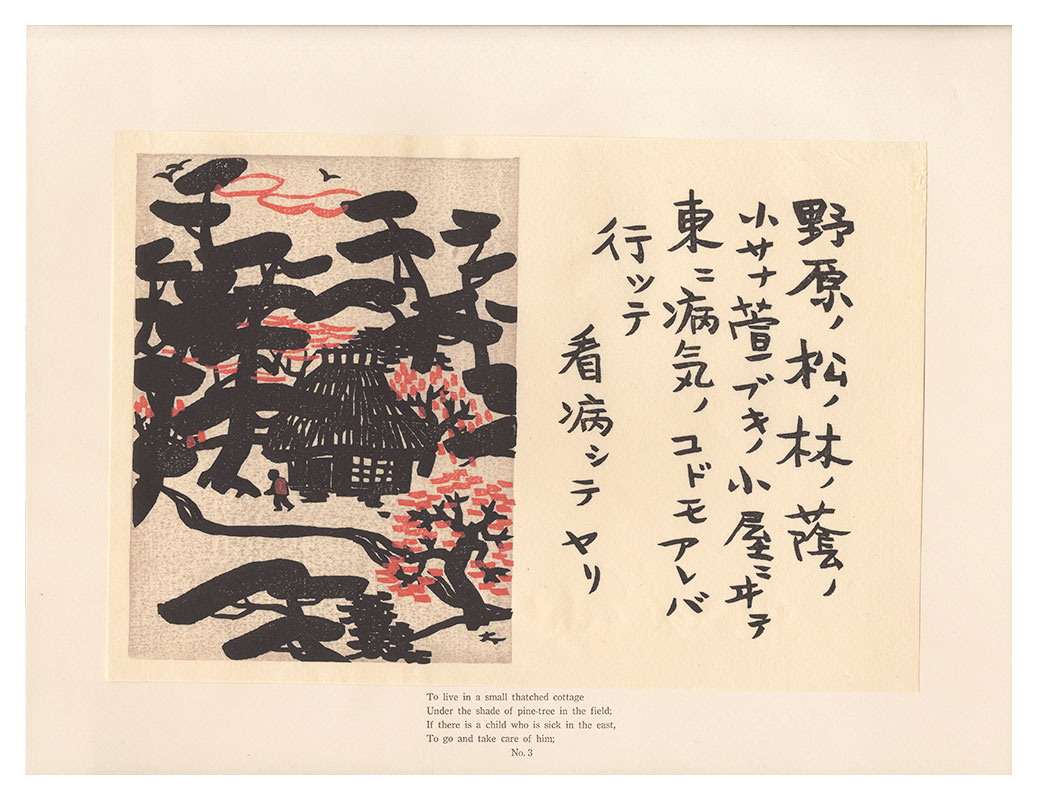 野原ノ松ノ林ノ蔭ノ
小サナ萱ブキノ小屋ニヰテ
東ニ病気ノコドモアレバ
行ッテ
看病シテヤリ
To live in a small thatched cottage
Under the shade of pine-tree in the field;
If there is a child who is sick in the east,
To go and take care of him;
No. 3